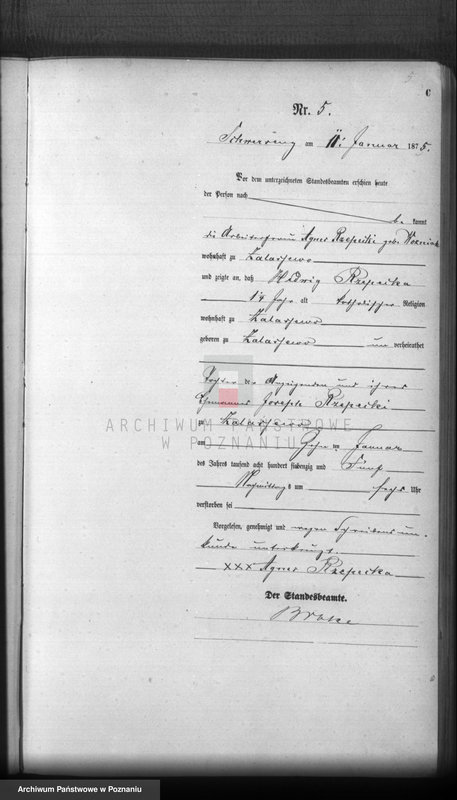 5
C
Nr. 5.
Schwersenz am 11. Januar 1875.
Vor dem unterzeichneten Standesbeamten erschien heute
der Person nach
be kannt
die Arbeiterfrau Agnes Rzepecki geb. Wozniak
wohnhaft zu Zalasewo
und zeigte an, daß Hedwig Rzepecka
14 Jahr alt katholischer Religion
wohnhaft zu Zalasewo
geboren zu Zalasewo un verheirathet
Tochter der Anzeigenden und ihres
Ehemannes Joseph Rzepecki
ARCHIWUM PAŃSTWOWE
zu Zalasewo
W POZNANIU
am Zehn ten Januar
des Jahres tausend acht hundert siebenzig und Fünf
Nachmittag s um sechs Uhr
verstorben sei
Vorgelesen, genehmigt und wegen Schreibens un-
kunde unterkreuzt.
xxx Agnes Rzepecka
Der Standesbeamte.
Archiwum Państwowe w Poznaniu